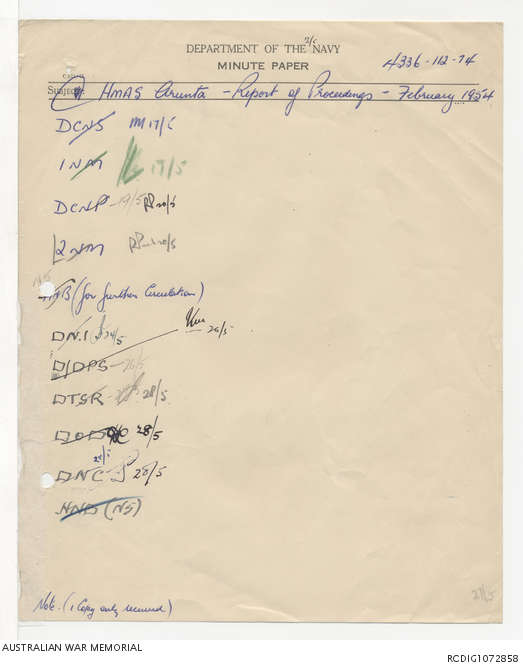 2/c
DEPARTMENT OF THE NAVY
MINUTE PAPER
4336-112-74
Subject: HMAS Arunta - Report of Proceedings - February 1954
DCNS 17/5
1NM 19/5
DCNP 19/5 20/5
2NM 20/5
(for further Circulation)
DN.I 26/5 26/5
D/DPS 26/5
DTSR 28/5
DOD 28/5
DNC 28/5
NND (N5)
Note. (1 Copy only received)
27/5
AUSTRALIAN WAR MEMORIAL
RCDIG1072858